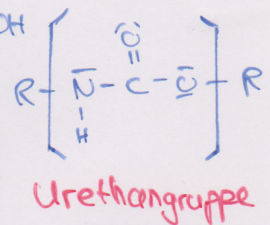 OH
O
R-N-C-O-R
H
Urethangruppe